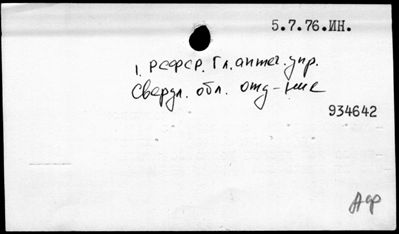 5.7.76.ИН.
1. РСФСР. Гл. аптеч. упр.
Свердл. обл. отд-ние
934642
Аф